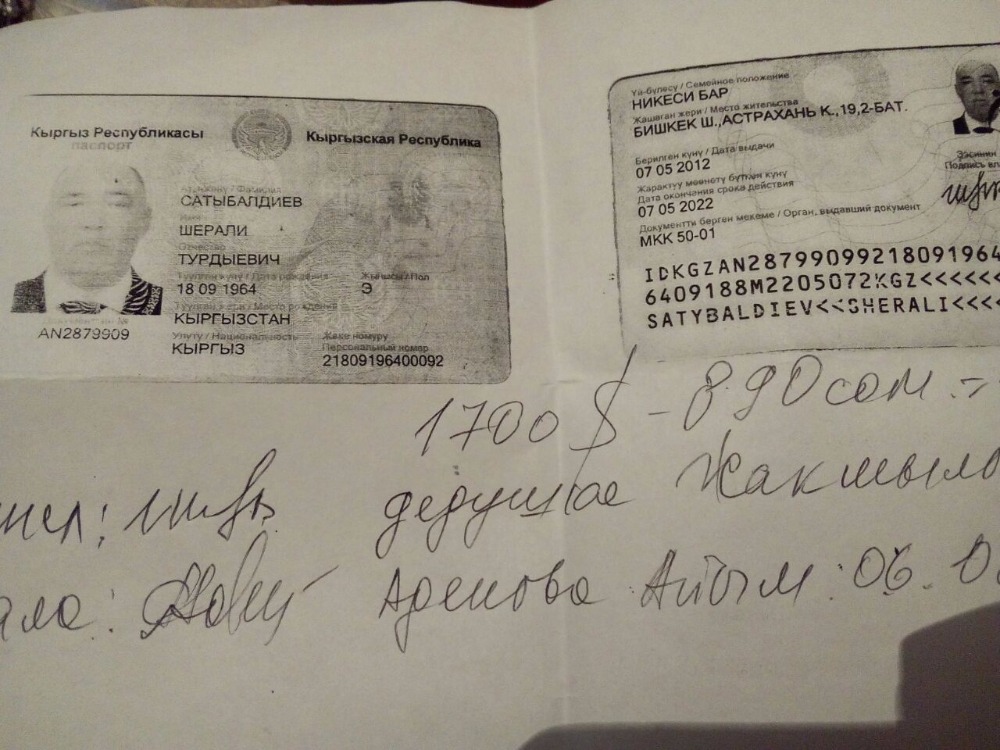 Кыргыз Республикасы
паспорт
Кыргызская Республика
Фамилия
САТЫБАЛДИЕВ
ШЕРАЛИ
Отчество
ТУРДЫЕВИЧ
Туулган күнү / Дата рождения
Жынысы / Пол
18 09 1964
Э
Туулган жери / Место рождения
КЫРГЫЗСТАН
Улуту / Национальность
КЫРГЫЗ
Жеке номуру
Персональный номер
21809196400092
AN2879909
Үй-бүлөсү / Семейное положение
НИКЕСИ БАР
Жашаган жери / Место жительства
БИШКЕК Ш.,АСТРАХАНЬ К.,19,2-БАТ.
Берилген күнү / Дата выдачи
07 05 2012
Жарактуу мөөнөтү бүткөн күнү
Дата окончания срока действия
07 05 2022
Документти берген мекеме / Орган, выдавший документ
МКК 50-01
Ээсинин
Подпись вла
IDKGZAN28799099218091964
6409188M2205072KGZ<<<<<<
SATYBALDIEV<<SHERALI<<<<
1700 $ - 890 сом =
дедушка Жакмыл
Аденова Айым: 06.